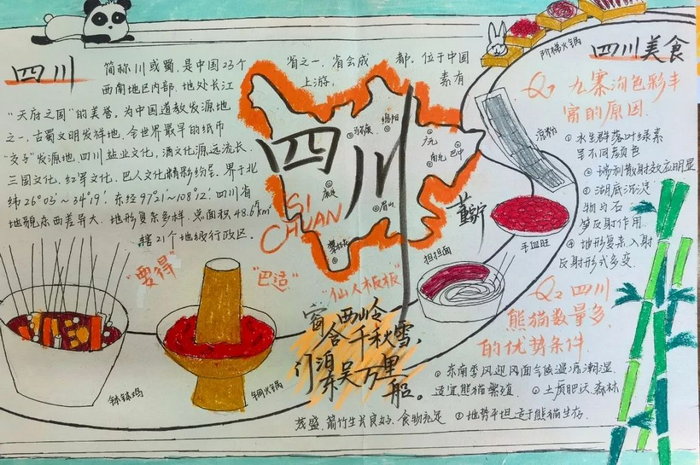 四川
简称川或蜀,是中国23个
省之一,省会成
都,位于中国
西南地区内部,地处长江
上游,
素有
"天府之国"的美誉,为中国道教发源地
之一,古蜀文明发祥地,全世界最早的纸币
"交子"发源地.四川盐业文化,酒文化源远流长
三国文化,红军文化,巴人文化精彩纷呈,界于北
纬26°03′~34°19′,东经97°21′~108°12′,四川省
地貌东西差异大,地形复杂多样,总面积48.6万km²
辖21个地级行政区.
四川
SI
CHUAN
绵阳
广元
南充
巴中
眉山
"要得"
"巴适"
"仙人板板"
钵钵鸡
铜火锅
担担面
毛血旺
凉粉
阶梯火锅
窗含西岭
千秋雪,
门泊
东吴万里
船。
四川美食
Q₁ 九寨沟色彩丰
富的原因.
①水生群落叶绿素
呈不同颜色
②瑞利散射效应明显
③湖底沉淀
物与石
头反射作用.
④地形复杂入射
反射形式多变.
Q₂ 四川
熊猫数量多
的优势条件.
①东南季风迎风面气候温凉潮湿
适宜熊猫繁殖.
②土质肥沃森林
茂盛,箭竹生长良好,食物充足
③地势平坦适于熊猫生存.